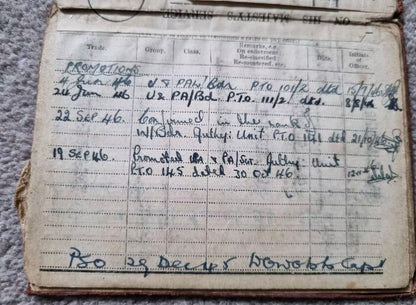 ON HIS MAJESTY'S SERVICE
Trade. Group. Class. Remarks, e.g., On enlistment Reclassified Re-mustered, etc. Initials of Officer.
PROMOTIONS
4 Jun 46 U & PAW/Bdr P.T.O 101/2 dtd
24 Jun 46 U & PA/Bdr. P.T.O. 111/2 dtd. 8/8/46
22 SEP 46. Confirmed in the rank of
W/Bdr. Authy: Unit P.T.O 141 dtd 21/10/46
19 SEP 46. Promoted & PA/Sgt. Authy:- Unit
P.T.O 145 dated 30 Oct 46.
29 Dec 45 Capt